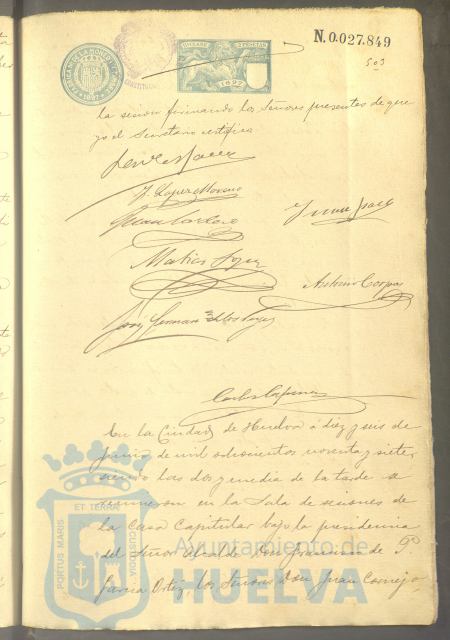 N.0.027.849
503
10ª CLASE 2 PESETAS
1897
la sesión firmando los Señores presentes de que
yo el Secretario certifico.
J. Lopez Moreno
Juan Cornejo
Matias Lopez
Antonio Corpas
José Fernandez de los Reyes
En la Ciudad de Huelva á diez y seis de
Junio de mil ochocientos noventa y siete,
siendo las dos y media de la tarde se
reunieron en la Sala de sesiones de
la Casa Capitular bajo la presidencia
del Señor Alcalde Don Francisco de P.
Garcia Ortiz, los Señores Don Juan Cornejo,
PORTUS MARIS ET TERRÆ CUSTODIA
Ayuntamiento de
HUELVA